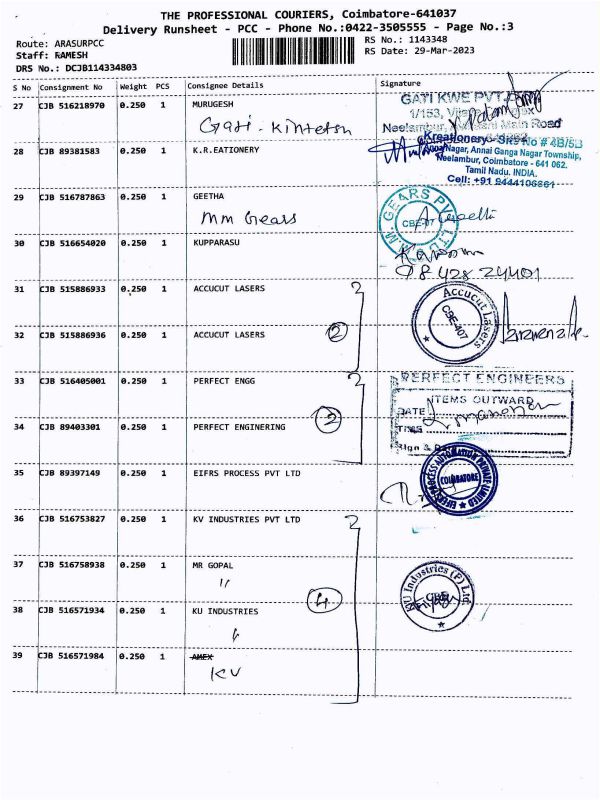 THE PROFESSIONAL COURIERS, Coimbatore-641037
Delivery Runsheet - PCC - Phone No.:0422-3505555 - Page No.:3
Route: ARASURPCC
RS No.: 1143348
Staff: RAMESH
RS Date: 29-Mar-2023
DRS No.: DCJB114334803
S No Consignment No Weight PCS Consignee Details Signature
27 CJB 516218970 0.250 1 MURUGESH
GATI KWE PVT
1/153,
Gati - Kintetsu
Neelambur, Main Road
28 CJB 89381583 0.250 1 K.R.EATIONERY
Kreationery SRS No # 4B/5B
Nagar, Annai Ganga Nagar Township,
Neelambur, Coimbatore - 641 062.
Tamil Nadu. INDIA.
Cell: +91 9444106661
29 CJB 516787863 0.250 1 GEETHA
MM Gears
M.M. GEARS PVT LTD
CBE-07
30 CJB 516654020 0.250 1 KUPPARASU
98428 24401
31 CJB 515886933 0.250 1 ACCUCUT LASERS
2
Accucut Lasers
CBE-407
32 CJB 515886936 0.250 1 ACCUCUT LASERS
33 CJB 516405001 0.250 1 PERFECT ENGG
2
PERFECT ENGINEERS
ITEMS OUTWARD
DATE
TIME
Sign &
34 CJB 89403301 0.250 1 PERFECT ENGINERING
35 CJB 89397149 0.250 1 EIFRS PROCESS PVT LTD
PROCESS AUTOMATION PRIVATE LIMITED
COIMBATORE
36 CJB 516753827 0.250 1 KV INDUSTRIES PVT LTD
37 CJB 516758938 0.250 1 MR GOPAL
"
4
KU Industries (P) Ltd
CBE
38 CJB 516571934 0.250 1 KU INDUSTRIES
39 CJB 516571984 0.250 1 AMEX
KV